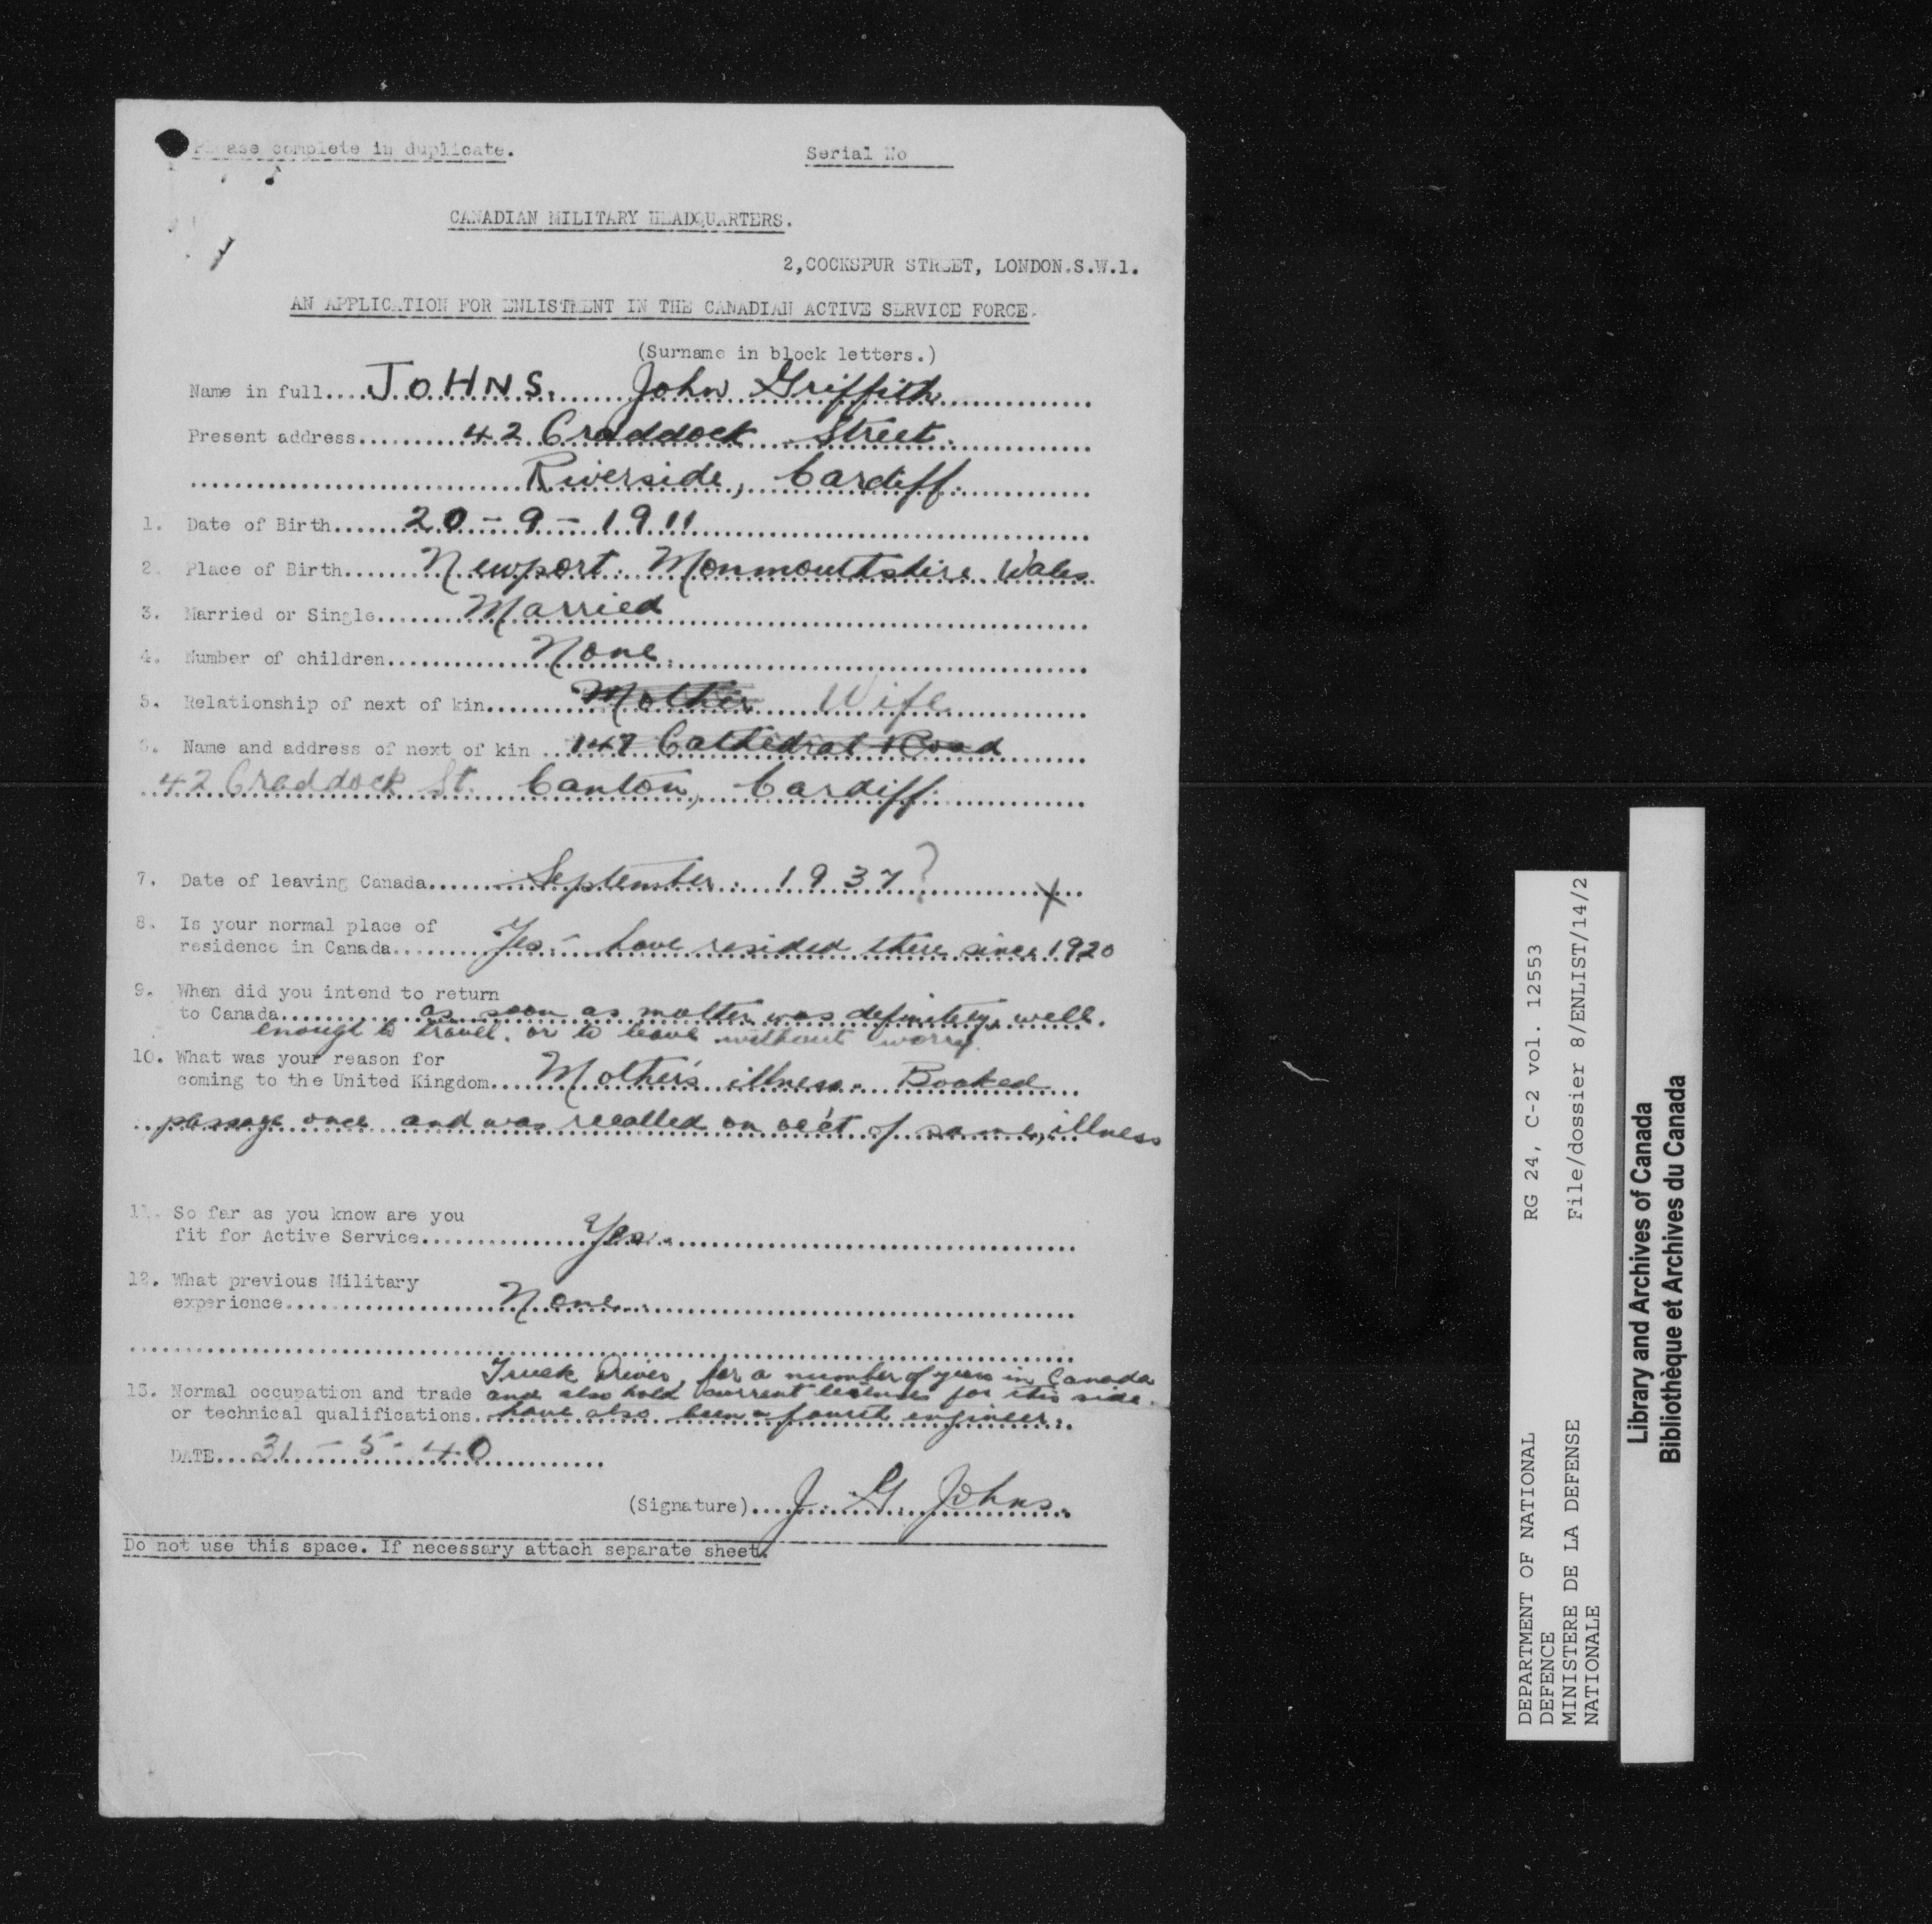 Please complete in duplicate.
Serial No
CANADIAN MILITARY HEADQUARTERS.
2,COCKSPUR STREET, LONDON.S.W.1.
AN APPLICATION FOR ENLISTMENT IN THE CANADIAN ACTIVE SERVICE FORCE.
(Surname in block letters.)
Name in full....JOHNS. John Griffith
Present address.........42 Craddock Street.
Riverside, Cardiff.
1. Date of Birth......20-9-1911
2. Place of Birth......Newport. Monmouthshire Wales
3. Married or Single.......Married
4. Number of children.............None.
5. Relationship of next of kin.........Mother Wife
6. Name and address of next of kin ..147 Cathedral Road
42 Craddock St. Canton, Cardiff.
7. Date of leaving Canada.......September. 1937 ?
8. Is your normal place of
residence in Canada........Yes - have resided there since 1920
9. When did you intend to return
to Canada............as soon as mother was definitely well.
enough to travel. or to leave without worry.
10. What was your reason for
coming to the United Kingdom....Mother's illness. Booked
passage once and was recalled on acc't of same, illness
11. So far as you know are you
fit for Active Service..............Yes.
12. What previous Military
experience....................None.
Truck Driver, for a number of years in Canada
13. Normal occupation and trade and also hold current license for this side.
or technical qualifications. have also been a fourth engineer.
DATE....31-5-40
(Signature)....J. G. Johns.
Do not use this space. If necessary attach separate sheet.
DEPARTMENT OF NATIONAL
DEFENCE
MINISTERE DE LA DEFENSE
NATIONALE
RG 24, C-2 vol. 12553
File/dossier 8/ENLIST/14/2
Library and Archives of Canada
Bibliothèque et Archives du Canada